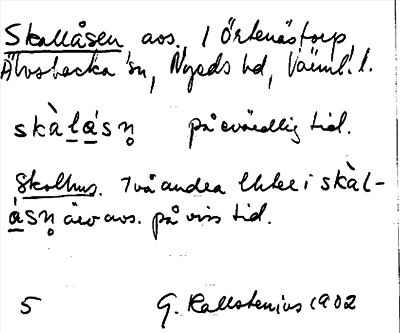 Skallåsen avs. i Örtenästorp,
Älvsbacka sn, Nyeds hd, Värml. l.
skàlásn̥ på evärdlig tid.
Skolhus. Två andra lutee i skàl-
ásn̥ äro avs. på viss tid.
5 G. Kallstenius 1902